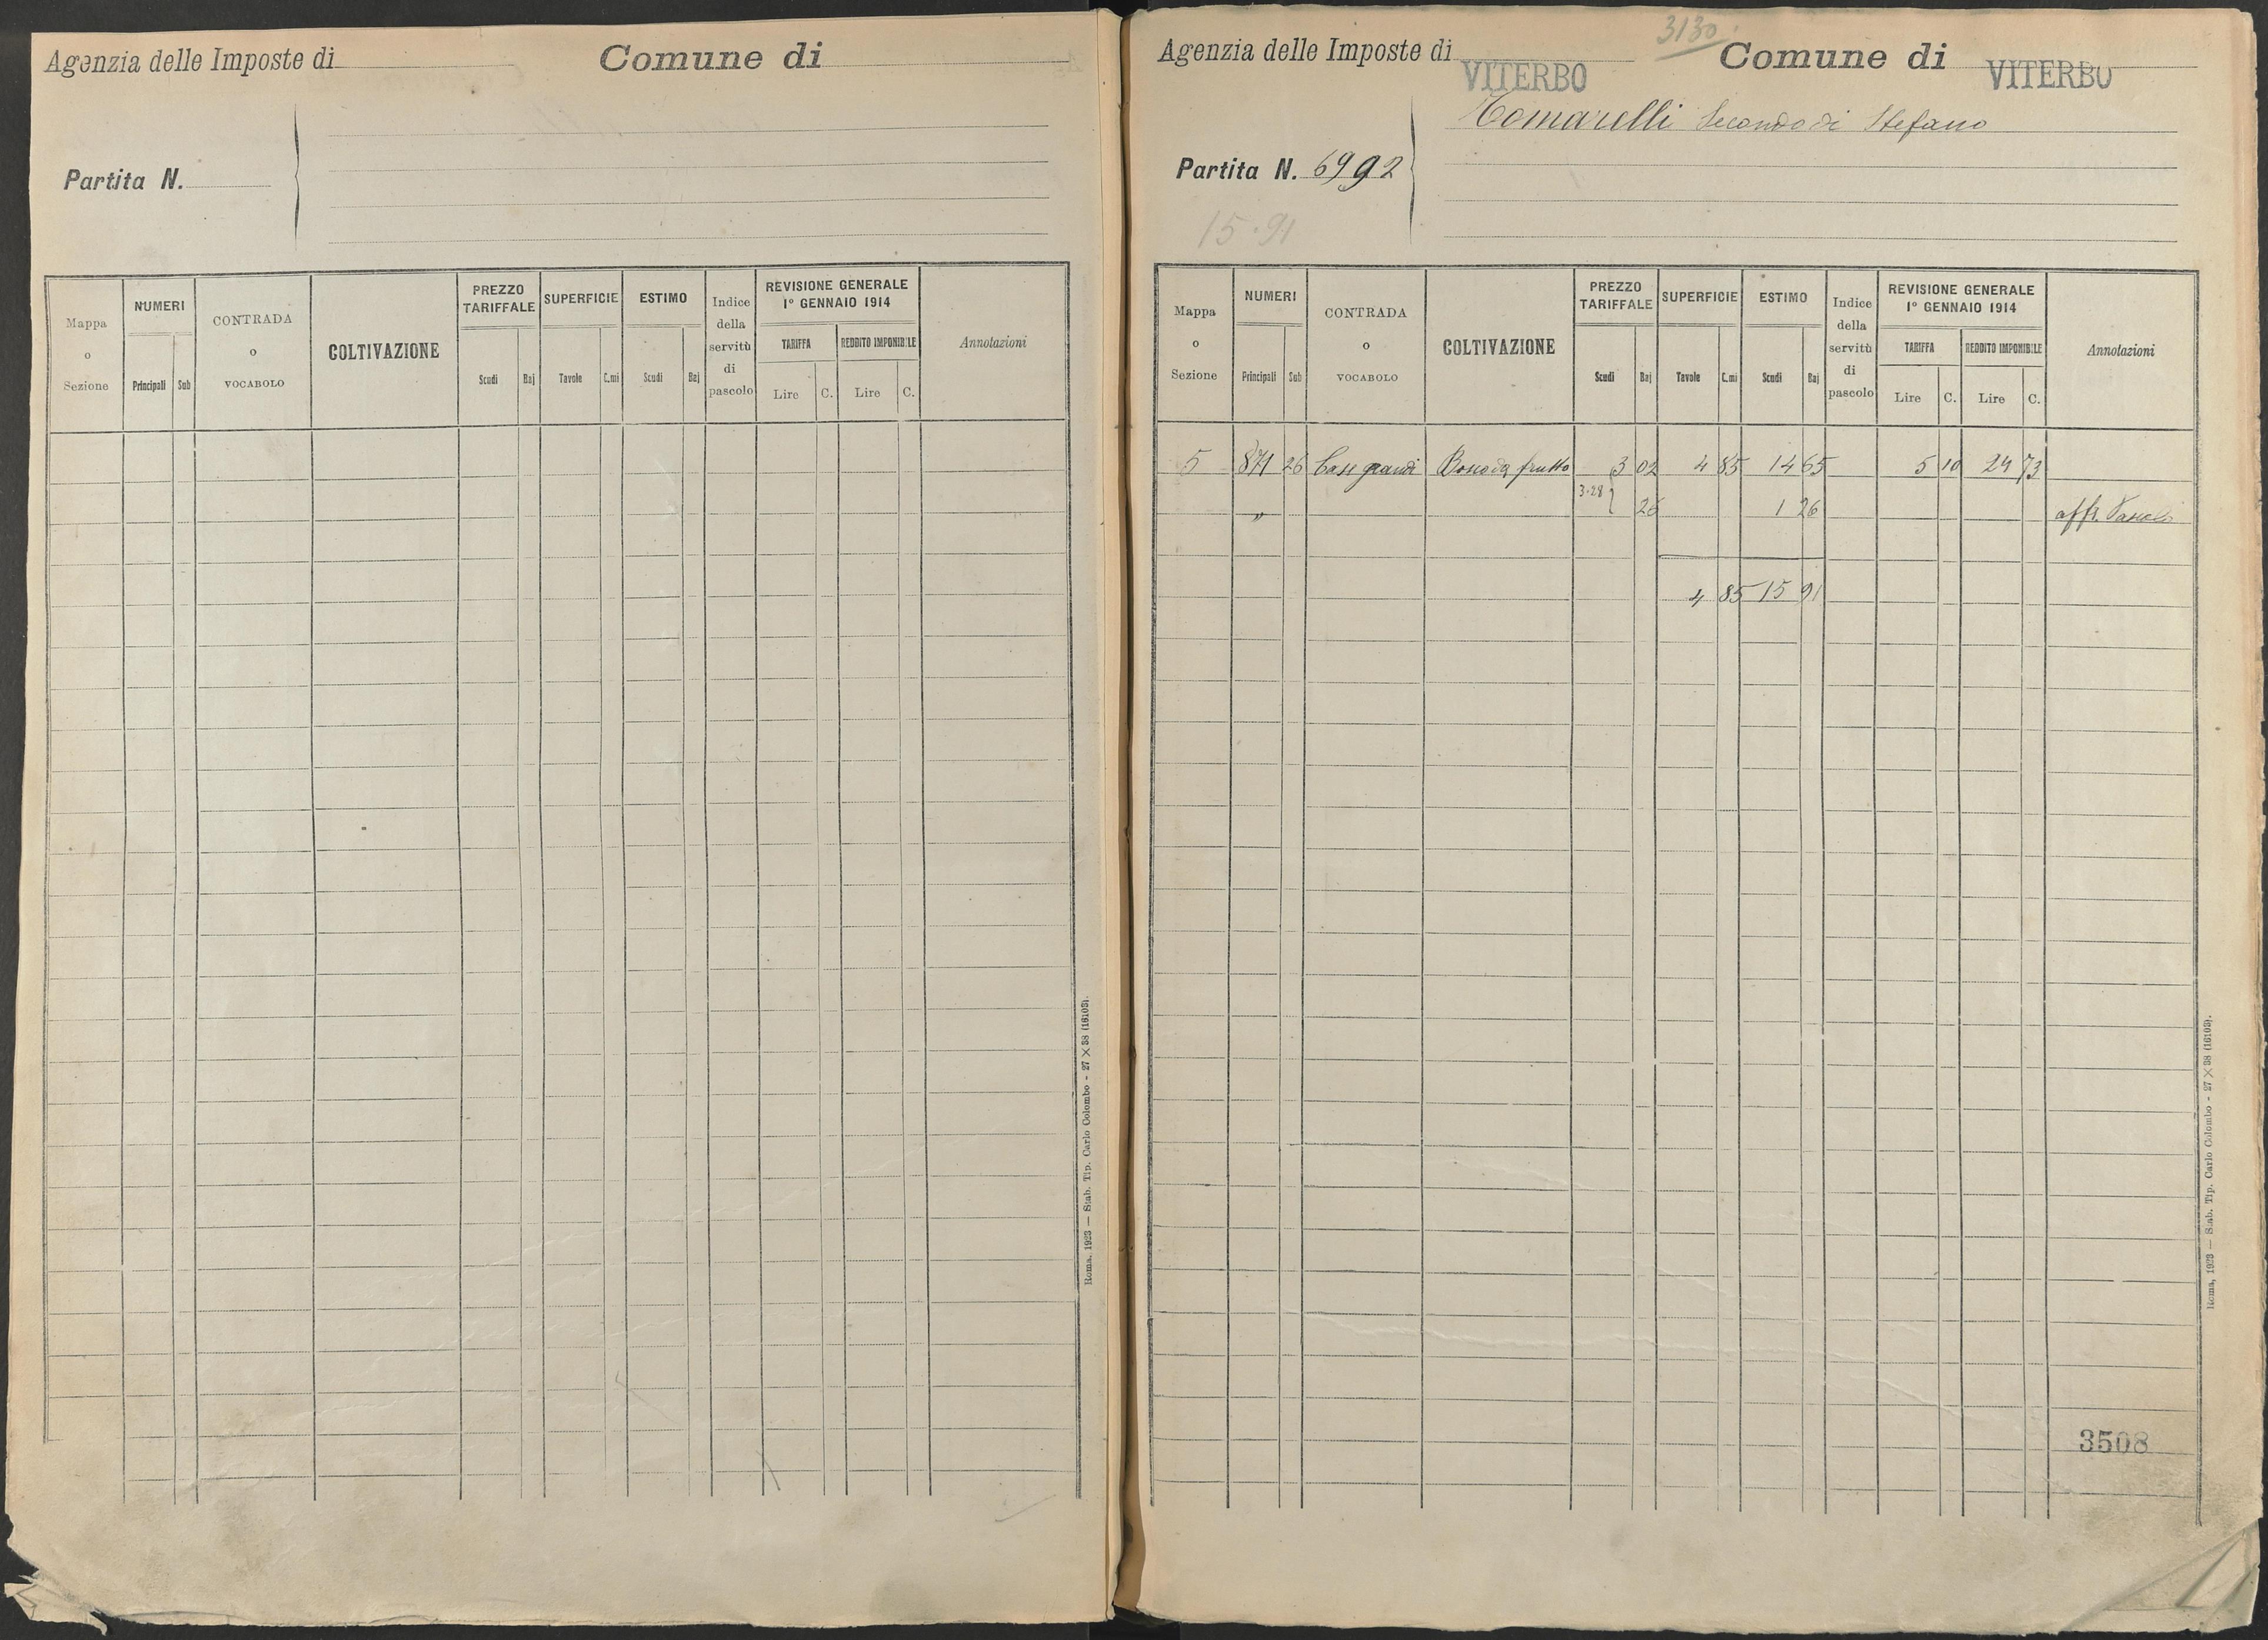 Agenzia delle Imposte di Comune di
Partita N.
Mappa o Sezione NUMERI Principali Sub CONTRADA o VOCABOLO COLTIVAZIONE PREZZO TARIFFALE Scudi Baj SUPERFICIE Tavole C.mi ESTIMO Scudi Baj Indice della servitù di pascolo REVISIONE GENERALE 1º GENNAIO 1914 TARIFFA Lire C. REDDITO IMPONIBILE Lire C. Annotazioni
Roma, 1923 — Stab. Tip. Carlo Colombo - 27 × 38 (16103).
3130
Agenzia delle Imposte di VITERBO Comune di VITERBO
Tomarelli Secondo di Stefano
Partita N. 6992
15.91
Mappa o Sezione NUMERI Principali Sub CONTRADA o VOCABOLO COLTIVAZIONE PREZZO TARIFFALE Scudi Baj SUPERFICIE Tavole C.mi ESTIMO Scudi Baj Indice della servitù di pascolo REVISIONE GENERALE 1º GENNAIO 1914 TARIFFA Lire C. REDDITO IMPONIBILE Lire C. Annotazioni
5 871 26 Case grandi Bosco da frutto 3 02 4 85 14 65 5 10 24 73
" 3.28 } 26 1 26 affr.
4 85 15 91
3508
Roma, 1923 — Stab. Tip. Carlo Colombo - 27 × 38 (16103).